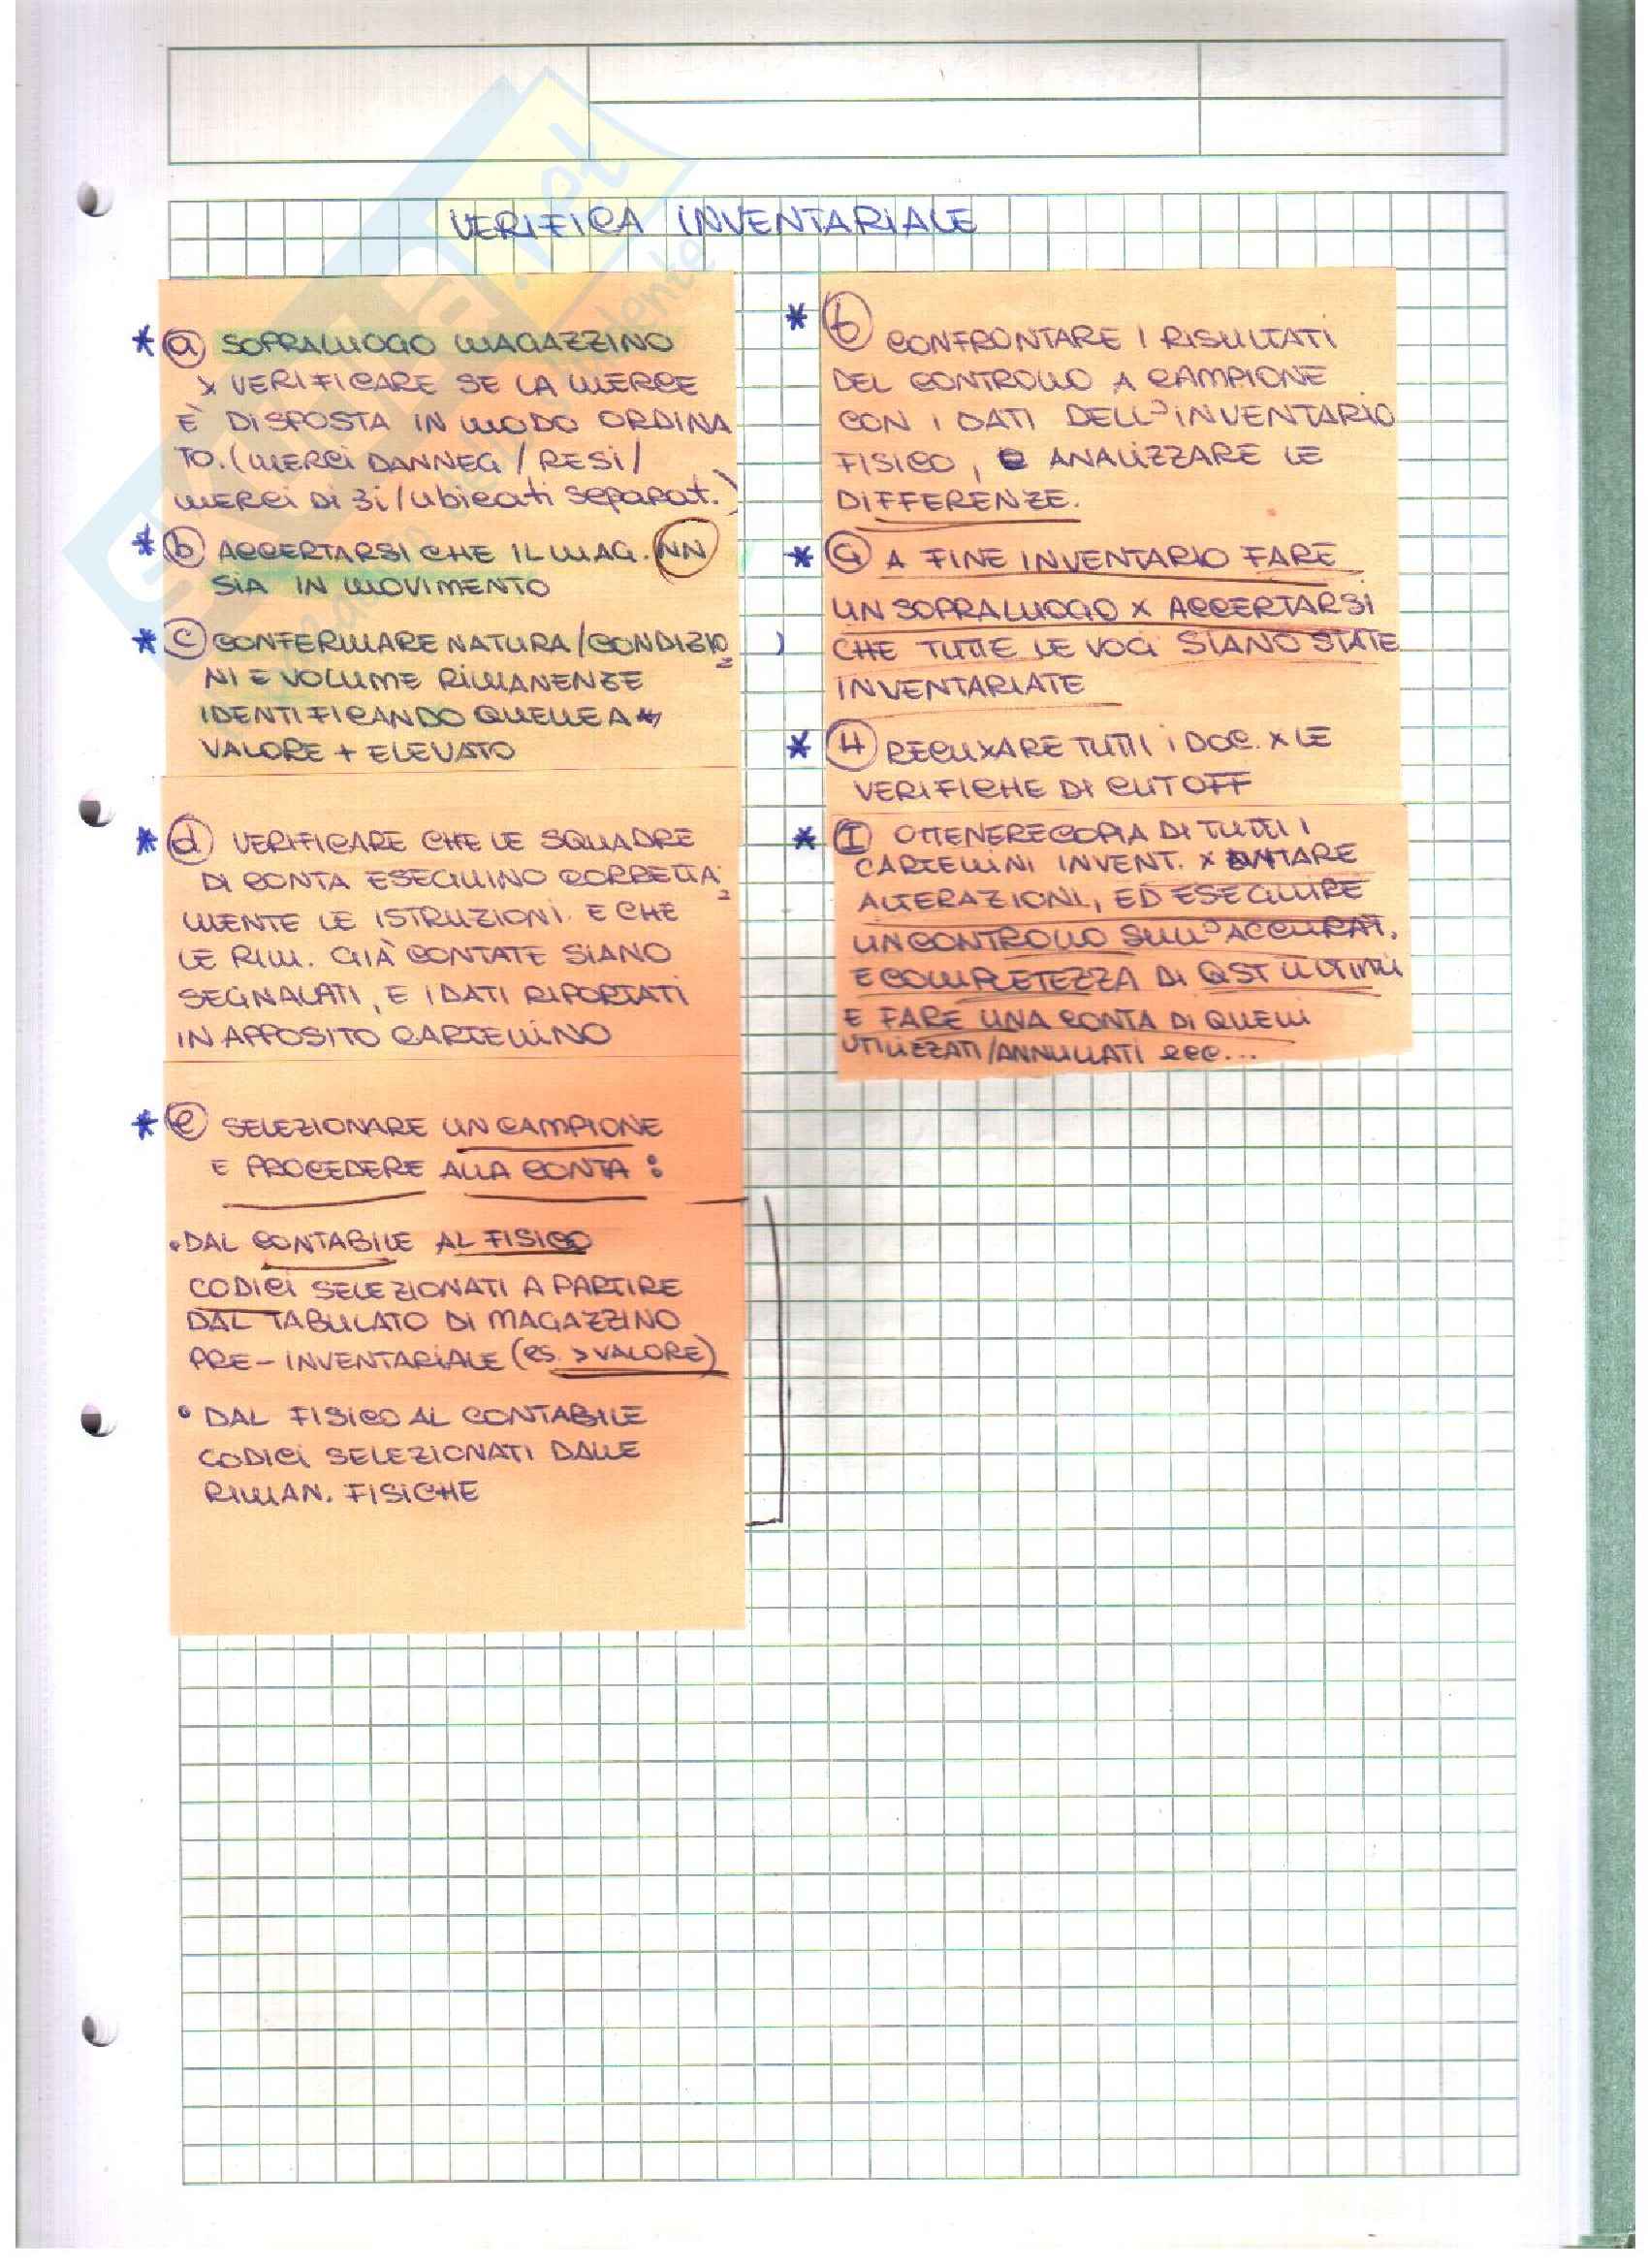 VERIFICA INVENTARIALE
* a SOPRALLUOGO MAGAZZINO
x VERIFICARE SE LA MERCE
È DISPOSTA IN MODO ORDINA
TO. (MERCI DANNEG / RESI /
MERCI DI 3i / ubicati separat.)
* b ACCERTARSI CHE IL MAG. NN
SIA IN MOVIMENTO
* c CONFERMARE NATURA/CONDIZIO
NI E VOLUME RIMANENZE
IDENTIFICANDO QUELLE A
VALORE + ELEVATO
* d VERIFICARE CHE LE SQUADRE
DI CONTA ESEGUINO CORRETTA
MENTE LE ISTRUZIONI. E CHE
LE RIM. GIÀ CONTATE SIANO
SEGNALATI, E I DATI RIPORTATI
IN APPOSITO CARTELLINO
* e SELEZIONARE UN CAMPIONE
E PROCEDERE ALLA CONTA :
• DAL CONTABILE AL FISICO
CODICI SELEZIONATI A PARTIRE
DAL TABULATO DI MAGAZZINO
PRE-INVENTARIALE (es. > VALORE)
• DAL FISICO AL CONTABILE
CODICI SELEZIONATI DALLE
RIMAN. FISICHE
* CONFRONTARE I RISULTATI
DEL CONTROLLO A CAMPIONE
CON I DATI DELL'INVENTARIO
FISICO, E ANALIZZARE LE
DIFFERENZE.
* G A FINE INVENTARIO FARE
UN SOPRALLUOGO x ACCERTARSI
CHE TUTTE LE VOCI SIANO STATE
INVENTARIATE
* H TUTTI i DOC. x LE
VERIFICHE DI CUT OFF
* I OTTENERE COPIA DI TUTTI I
CARTELLINI INVENT. x
ALTERAZIONI, ED ESEGUIRE
UN CONTROLLO SULL'ACCURAT.
E COMPLETEZZA DI QST ULTIMI
E FARE UNA CONTA DI QUELLI
UTILIZZATI/ANNULLATI ecc...